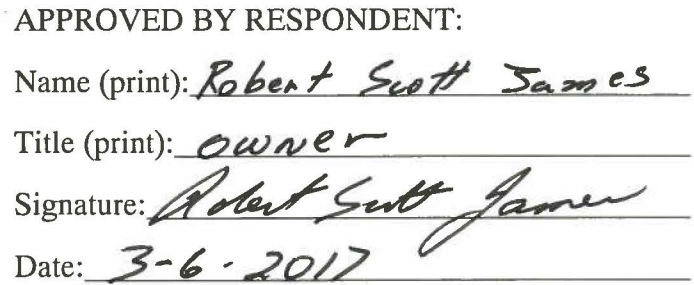 APPROVED BY RESPONDENT:
Name (print): Robert Scott James
Title (print): owner
Signature: Robert Scott James
Date: 3-6-2017